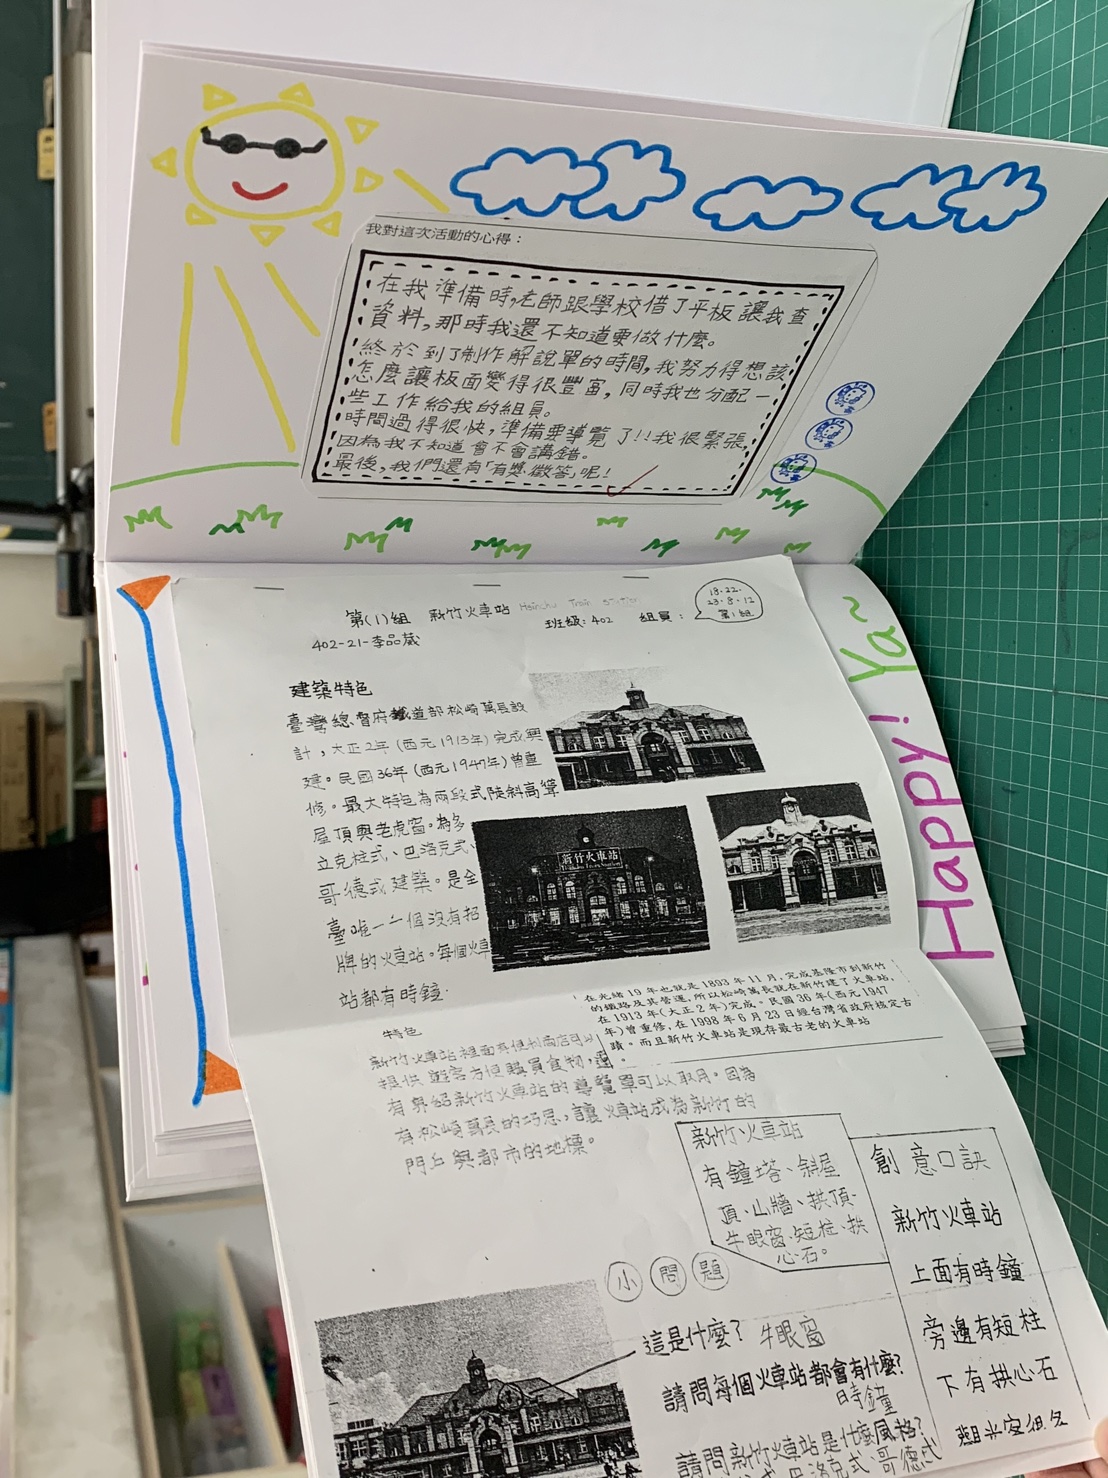 我對這次活動的心得：
在我準備時,老師跟學校借了平板讓我查
資料,那時我還不知道要做什麼。
終於到了制作解說單的時間,我努力得想該
怎麼讓板面變得很豐富,同時我也分配一
些工作給我的組員。
時間過得很快,準備要導覽了!!我很緊張,
因為我不知道會不會講錯。
最後,我們還有「有獎徵答」呢!
第(1)組 新竹火車站 Hsinchu Train station
班級:402 組員:
18.22.
23.8.12
第1組
402-21-李品葳
建築特色
臺灣總督府鐵道部松崎萬長設
計,大正2年(西元1913年)完成興
建。民國36年(西元1947年)曾重
修。最大特色為兩段式陡斜高聳
屋頂與老虎窗。為多
立克柱式、巴洛克式、
哥德式建築。是全
臺唯一一個沒有招
牌的火車站。每個火車
站都有時鐘.
新竹火車站
在光緒 19 年也就是 1893 年 11 月,完成基隆市到新竹
的鐵路及其營運,所以松崎萬長就在新竹建了火車站,
在 1913 年(大正 2 年)完成。民國 36 年(西元 1947
年)曾重修,在 1998 年 6 月 23 日經台灣省政府核定古
蹟。而且新竹火車站是現存最古老的火車站
特色
新竹火車站裡面有便利商店可以
提供遊客方便購買食物,還
有介紹新竹火車站的導覽單可以取用。因為
有松崎萬長的巧思,讓火車站成為新竹的
門戶與都市的地標。
新竹火車站
有鐘塔、斜屋
頂、山牆、拱頂、
牛眼窗、短柱、拱
心石。
創意口訣
新竹火車站
上面有時鐘
旁邊有短柱
下有拱心石
觀光客很多
小問題
這是什麼? 牛眼窗
請問每個火車站都會有什麼?
時鐘
請問新竹火車站是什麼風格?
巴洛克式、哥德式
Happy! Ya~